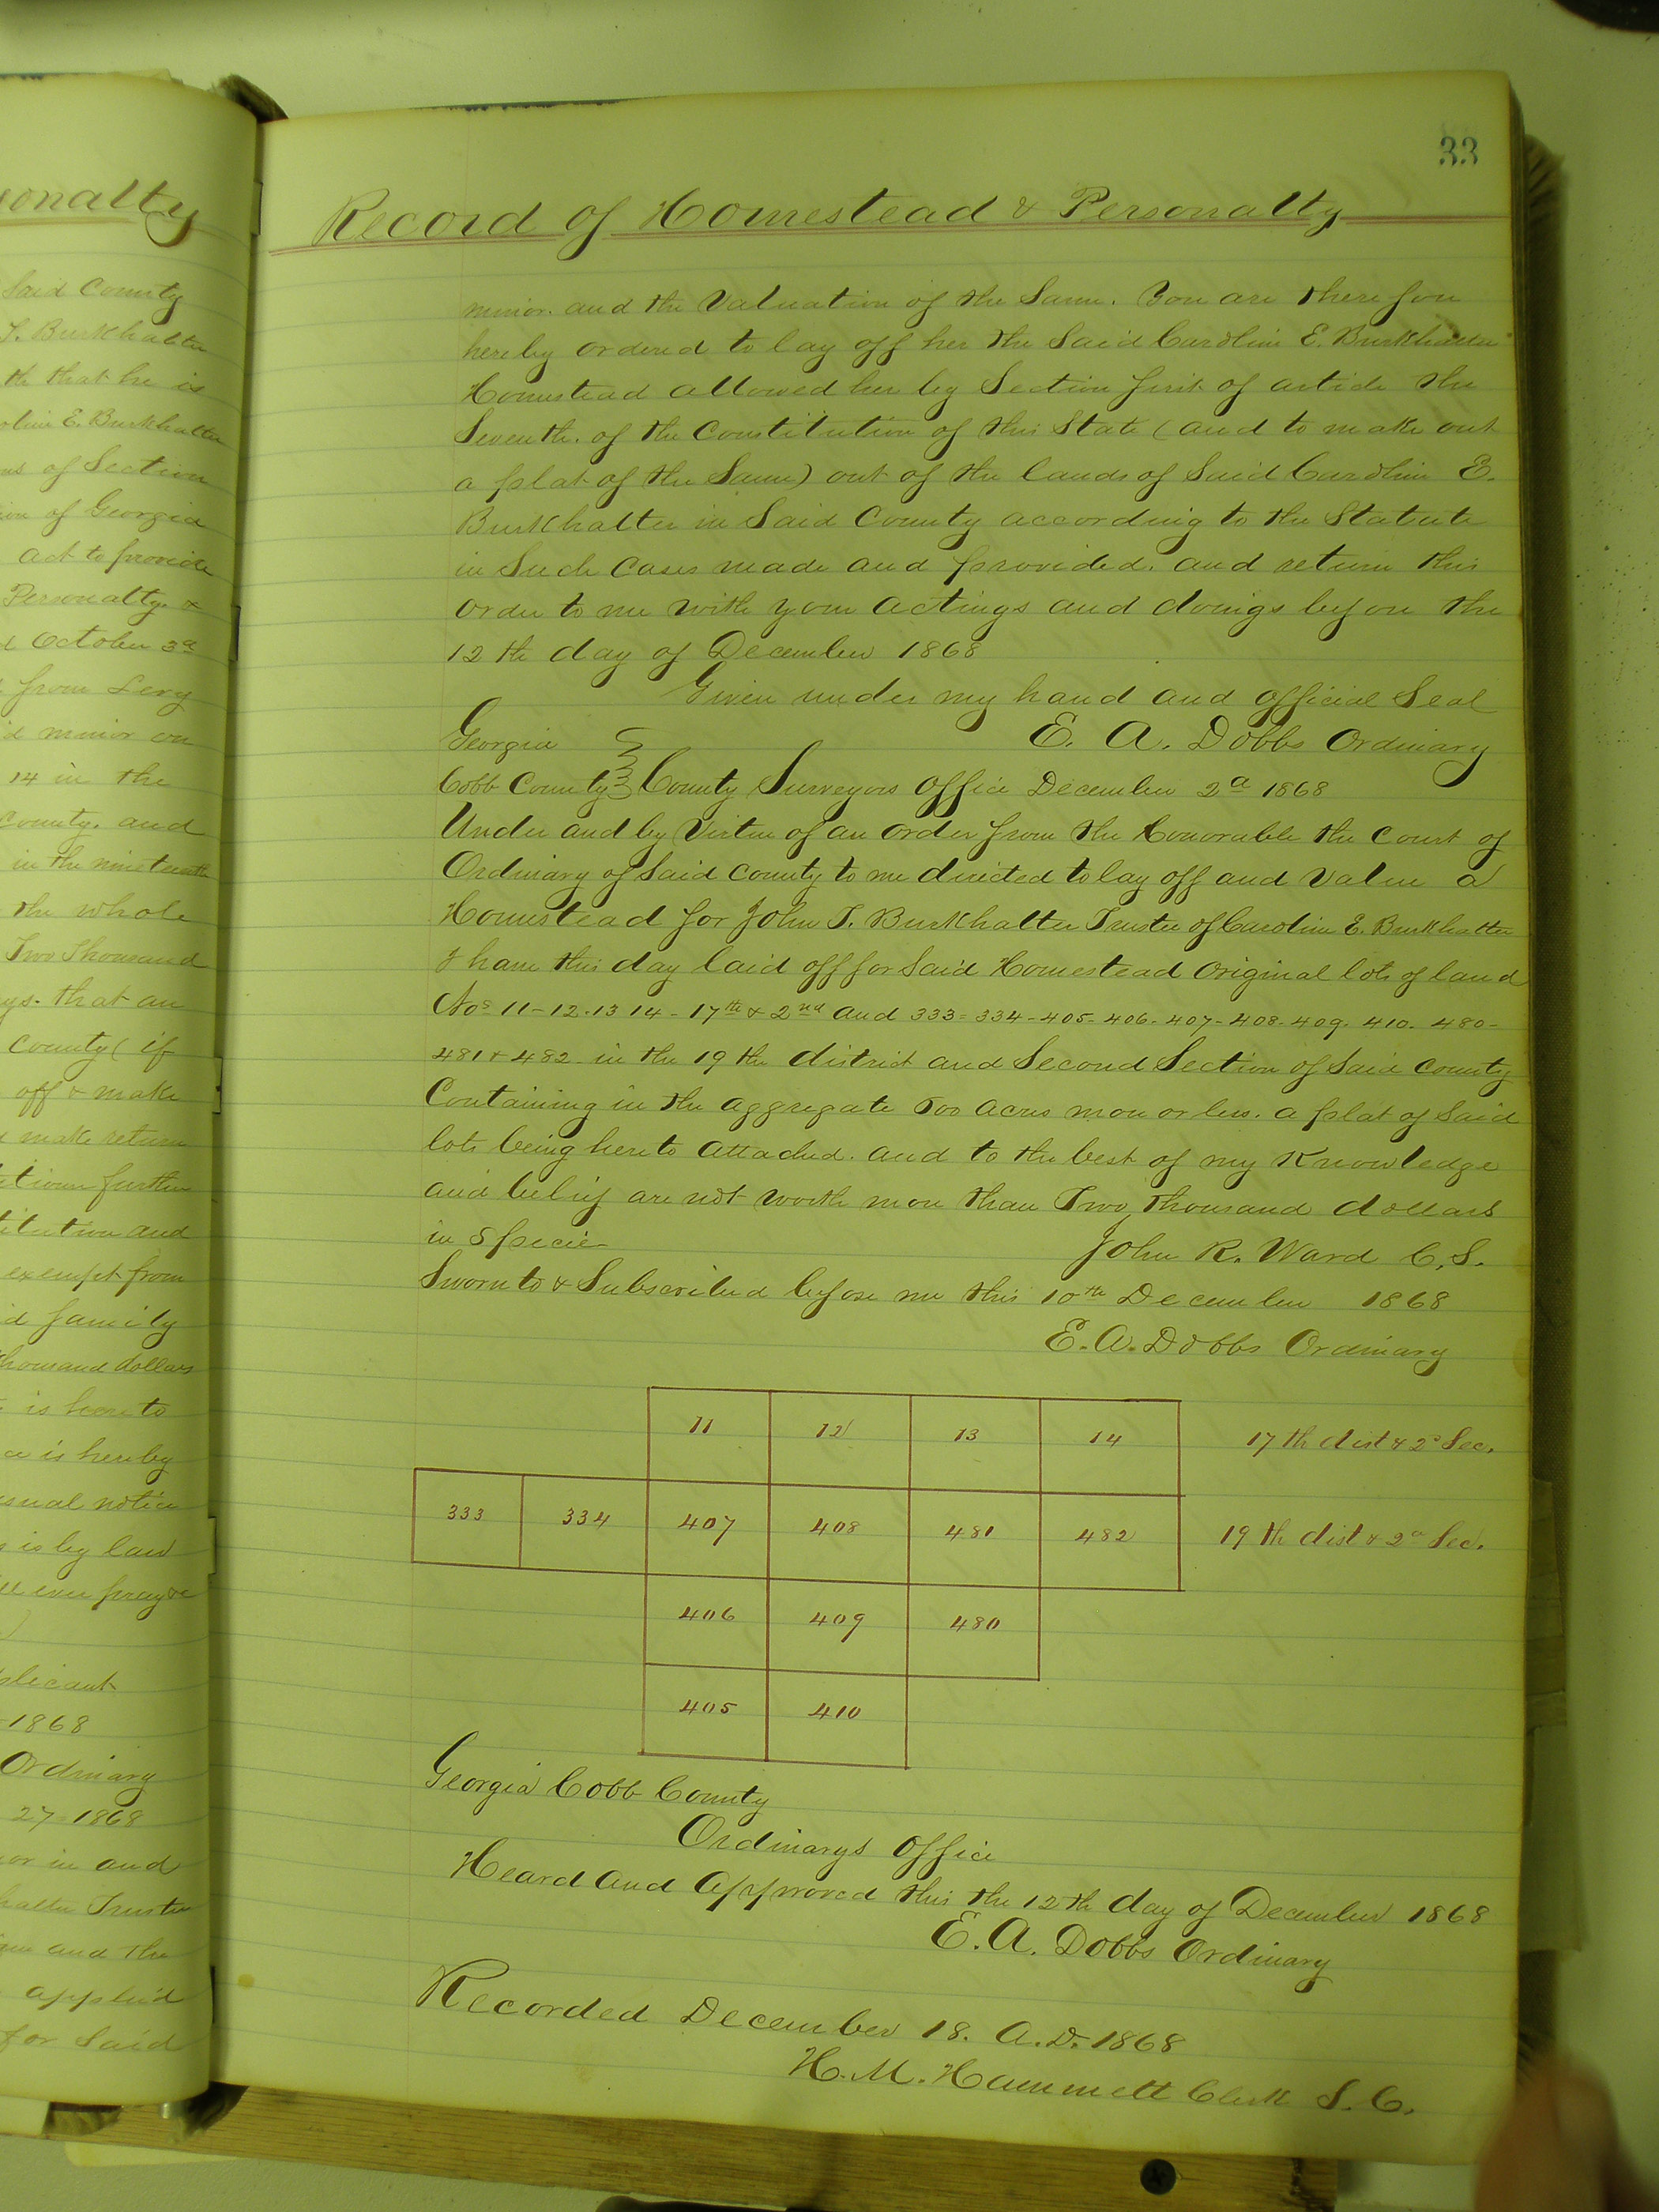 sonalty
Said County
T. Burkhalter
th that he is
oline E. Burkhalter
ns of Section
ion of Georgia
act to provide
Personalty &
October 3d
from Levy
d minor on
14 in the
County. and
in the nineteenth
the whole
Two Thousand
ys. that an
County (if
off & make
make return
etition further
titution and
exempt from
d family
thousand dollars
is here to
ce is hereby
usual notice
s is by law
ill ever pray &c
plicant
1868
Ordinary
27 1868
or in and
halter Trustee
and the
applied
for Said
33
Record of Homestead & Personalty
minor. and the Valuation of the Same. You are therefore
hereby ordered to lay off her the Said Caroline E. Burkhalter
Homestead allowed her by Section first of article the
Seventh. of the Constitution of this State (and to make out
a plat of the Same) out of the lands of Said Caroline E.
Burkhalter in Said County according to the Statute
in Such Cases made and provided. and return this
order to me with your actings and doings before the
12th day of December 1868
Given under my hand and official Seal
E. A. Dobbs Ordinary
Georgia
Cobb County County Surveyors office December 2d 1868
Under and by Virtue of an order from the Honorable the Court of
Ordinary of Said County to me directed to lay off and Value a
Homestead for John T. Burkhalter Trustee of Caroline E. Burkhalter
I have this day laid off for Said Homestead Original lots of land
Nos 11-12-13 14-17th & 2nd and 333-334-405-406-407-408-409. 410. 480-
481 & 482 in the 19th district and Second Section of Said County
Containing in the aggregate 500 acres more or less. a plat of Said
lots being hereto attached. and to the best of my Knowledge
and belief are not worth more than Two Thousand dollars
in Specie
John R. Ward C.S.
Sworn to & Subscribed before me this 10th December 1868
E. A. Dobbs Ordinary
11 12 13 14 17th dist & 2d Sec.
333 334 407 408 481 482 19th dist & 2d Sec.
406 409 480
405 410
Georgia Cobb County
Ordinarys office
Heard and Approved this the 12th day of December 1868
E. A. Dobbs Ordinary
Recorded December 18. A.D. 1868
H. M. Hammett Clerk S. C.